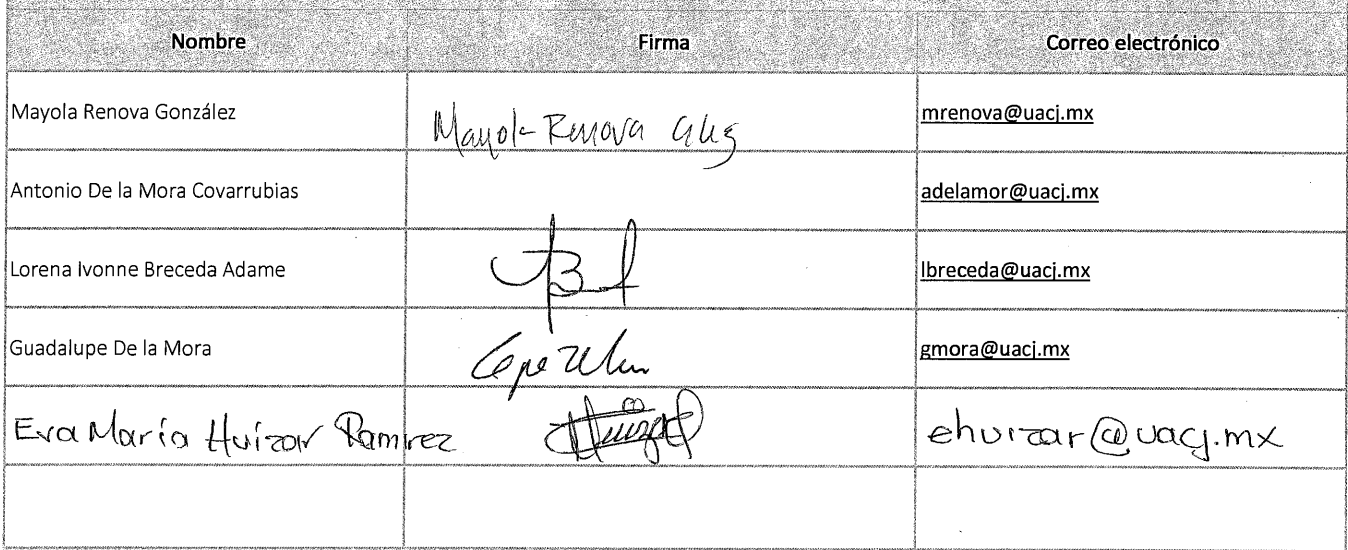 Nombre Firma Correo electrónico
Mayola Renova González Mayola Renova Glez mrenova@uacj.mx
Antonio De la Mora Covarrubias adelamor@uacj.mx
Lorena Ivonne Breceda Adame lbreceda@uacj.mx
Guadalupe De la Mora gmora@uacj.mx
Eva María Huízar Ramírez ehuizar@uacj.mx